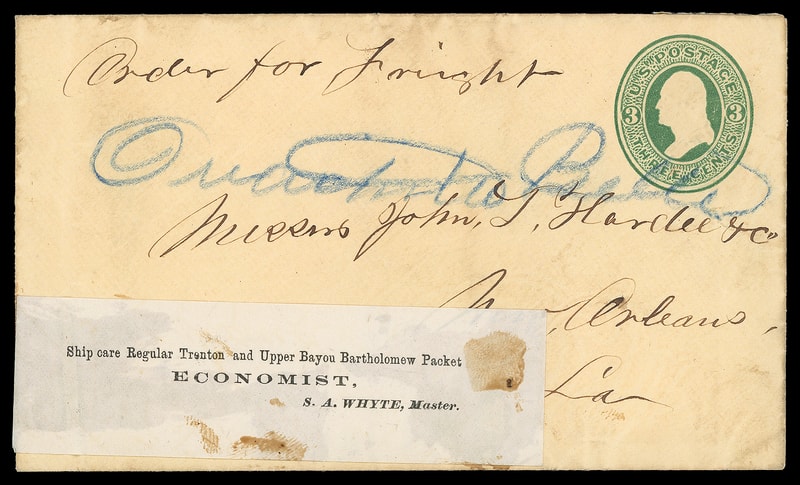 Order for Frieght
U.S. POSTAGE
3 3
THREE CENTS
Messrs John, T, Hardee & Co
Orleans,
La
Ship care Regular Trenton and Upper Bayou Bartholomew Packet
ECONOMIST,
S. A. WHYTE, Master.